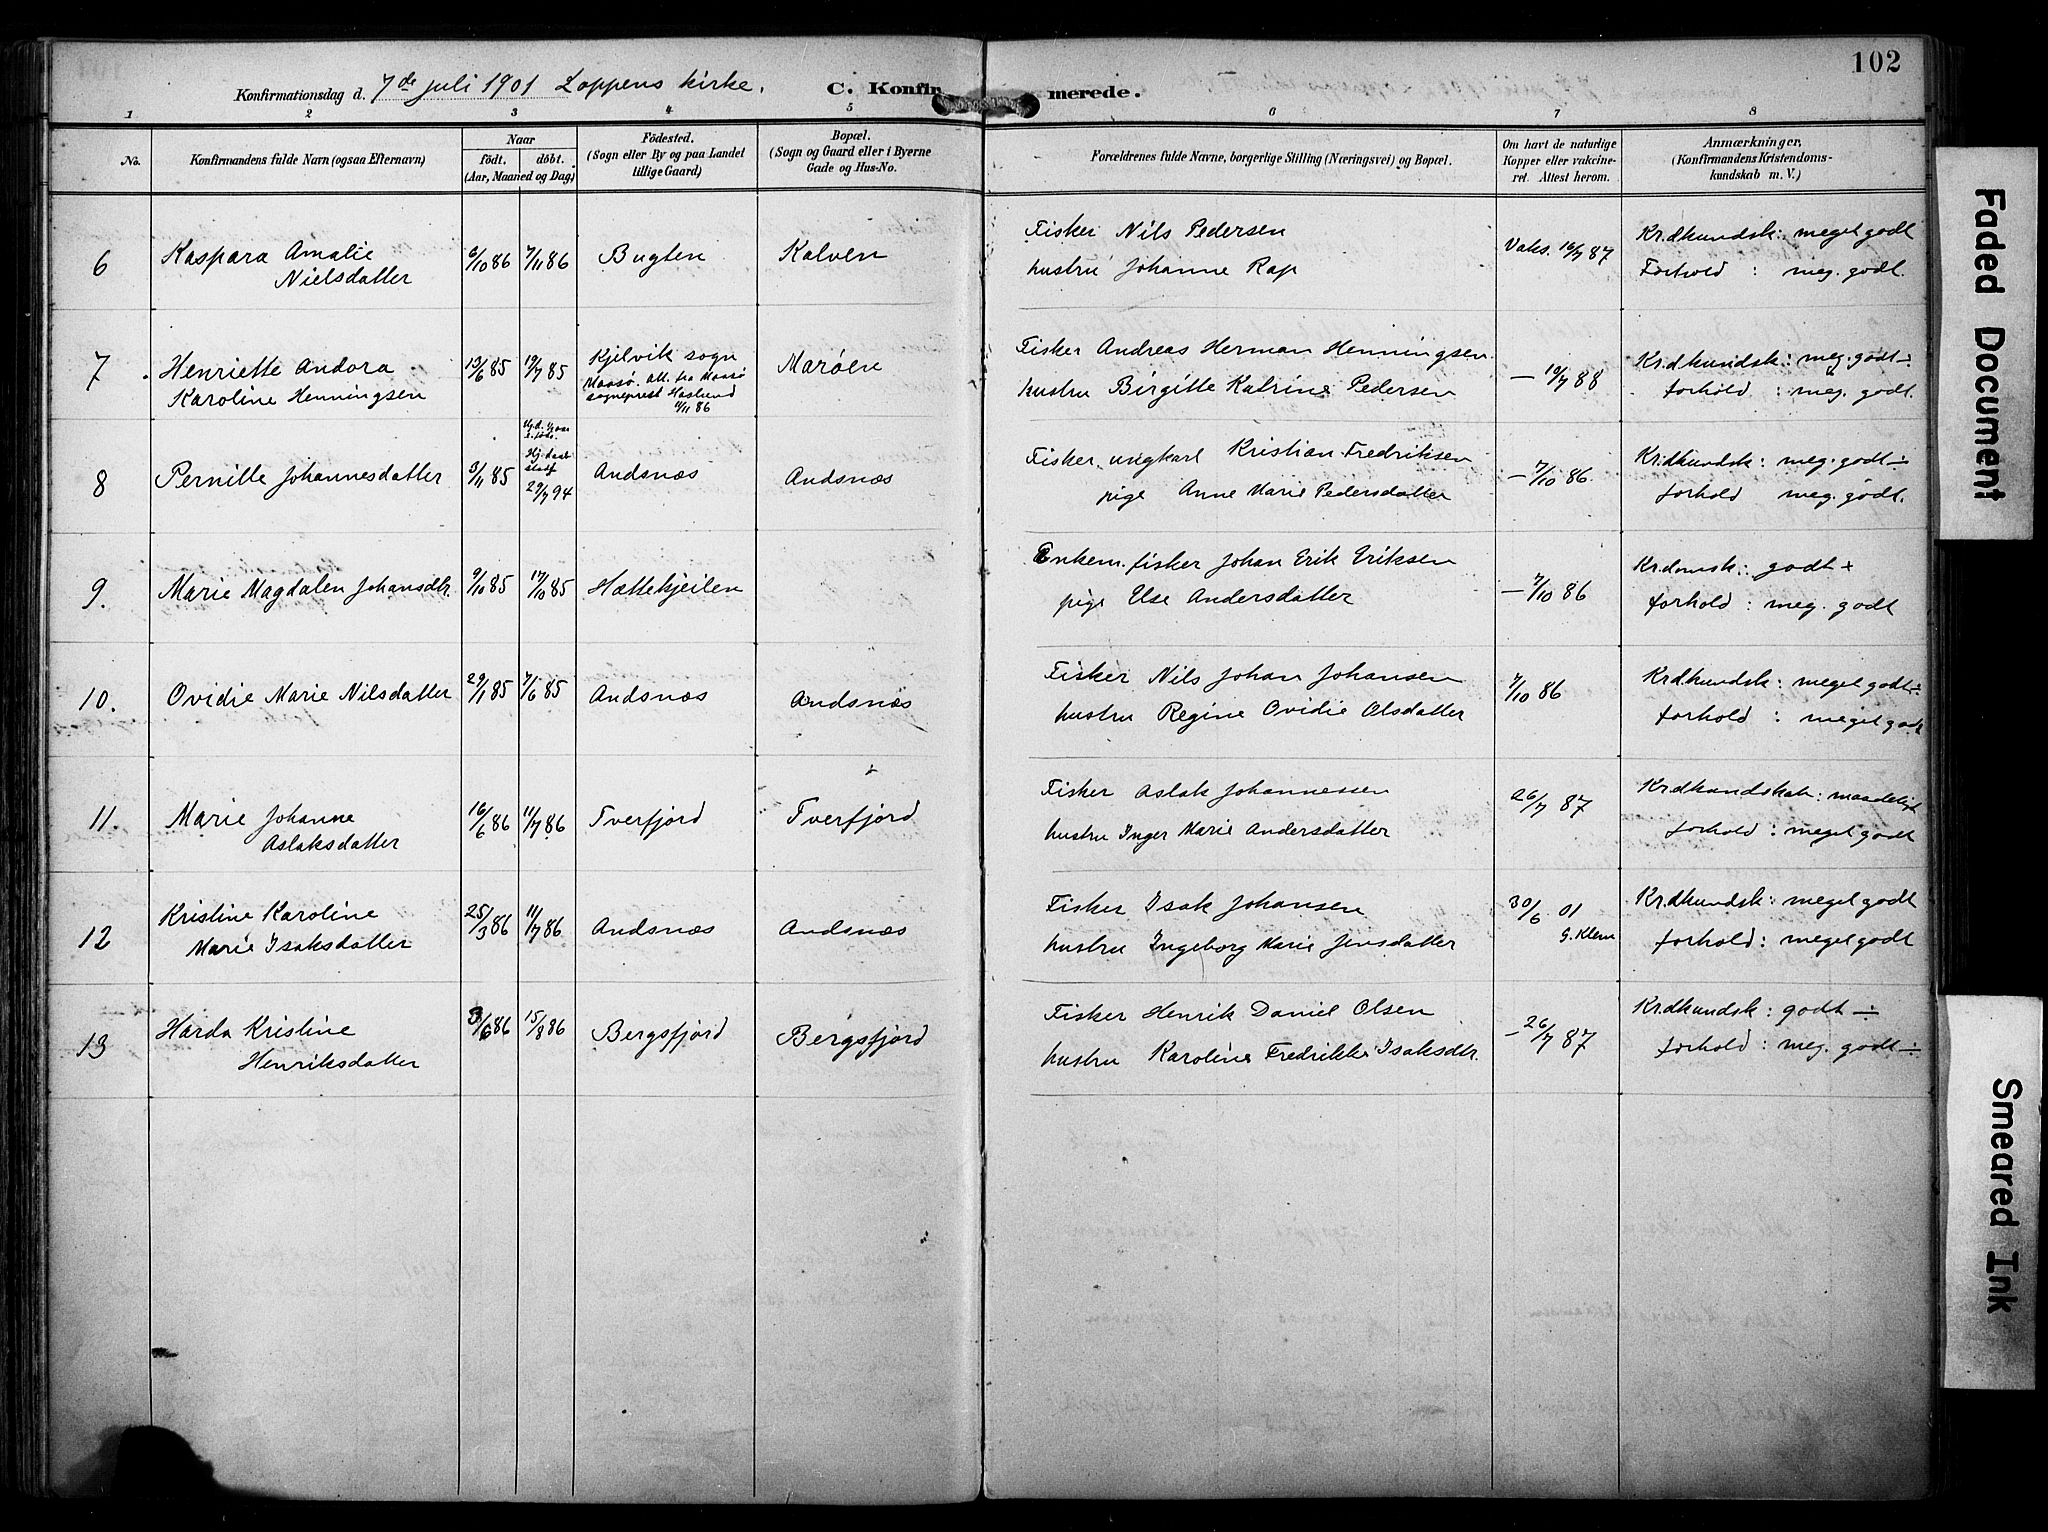 102
Konfirmationsdag d. 7de juli 1901 Loppens kirke. C. Konfirmerede.
1 2 3 4 5 6 7 8
No.
Konfirmandens fulde Navn (ogsaa Efternavn)
Naar
födt. döbt.
(Aar, Maaned og Dag)
Födested.
(Sogn eller By og paa Landet
tillige Gaard)
Bopæl.
(Sogn og Gaard eller i Byerne
Gade og Hus-No.
Forældrenes fulde Navne, borgerlige Stilling (Næringsvei) og Bopæl.
Om havt de naturlige
Kopper eller vakcine-
ret. Attest herom.
Anmærkninger,
(Konfirmandens Kristendoms-
kundskab m. V.)
6 Kaspara Amalie
Nielsdatter
6/10 86 7/11 86 Bugten Kalven
Fisker Nils Pedersen
hustru Johanne Rap
Vaks. 16/7 87
Kr.dkundsk: meget godt
Forhold : meg. godt.
7 Henriette Andora
Karoline Henningsen
13/6 85 19/7 85
Kjelvik sogn
Maasö. att. fra Maasö
sogneprest Haslund
4/11 86
Marøen
Fisker Andreas Herman Henningsen
hustru Birgitte Katrine Pedersen
— 19/7 88
Kr.dkundsk: meg. godt ÷
forhold : meg. godt.
8 Pernille Johannesdatter
3/11 85
Hj.d.
29/7 94
Andsnæs Andsnæs
Fisker, ungkarl Kristian Fredriksen
pige Anne Marie Pedersdatter
— 7/10 86.
Kr.dkundsk: meg. godt ÷
forhold meg. godt.
9. Marie Magdalen Johansdtr.
9/10 85 17/10 85 Hættekjeilen
Enkem. fisker Johan Erik Eriksen
pige Else Andersdatter
— 7/10 86
Kr.domsk: godt +
forhold : meg. godt
10. Ovidie Marie Nilsdatter
29/1 85 7/6 85 Andsnæs Andsnæs
Fisker Nils Johan Johansen
hustru Regine Ovidie Olsdatter
7/10 86
Krdkundsk: meget godt ÷
forhold : meget godt
11. Marie Johanne
Aslaksdatter
16/6 86 11/7 86 Tverfjord Tverfjord
Fisker Aslak Johannessen
hustru Inger Marie Andersdatter
26/7 87
Krdkundskab: maadeligt
forhold : meget godt
12 Kristine Karoline
Marie Isaksdatter
25/3 86 11/7 86 Andsnæs Andsnæs
Fisker Isak Johansen
hustru Ingeborg Marie Jensdatter
30/6 01
G. Klem
Kr.dkundsk: meget godt
forhold : meget godt
13 Harda Kristine
Henriksdatter
3/6 86 15/8 86 Bergsfjord Bergsfjord
Fisker Henrik Daniel Olsen
hustru Karoline Fredrikke Isaksdtr.
— 26/7 87
Kr.dkundsk: godt ÷
forhold : meg. godt ÷
Faded Document
Smeared Ink